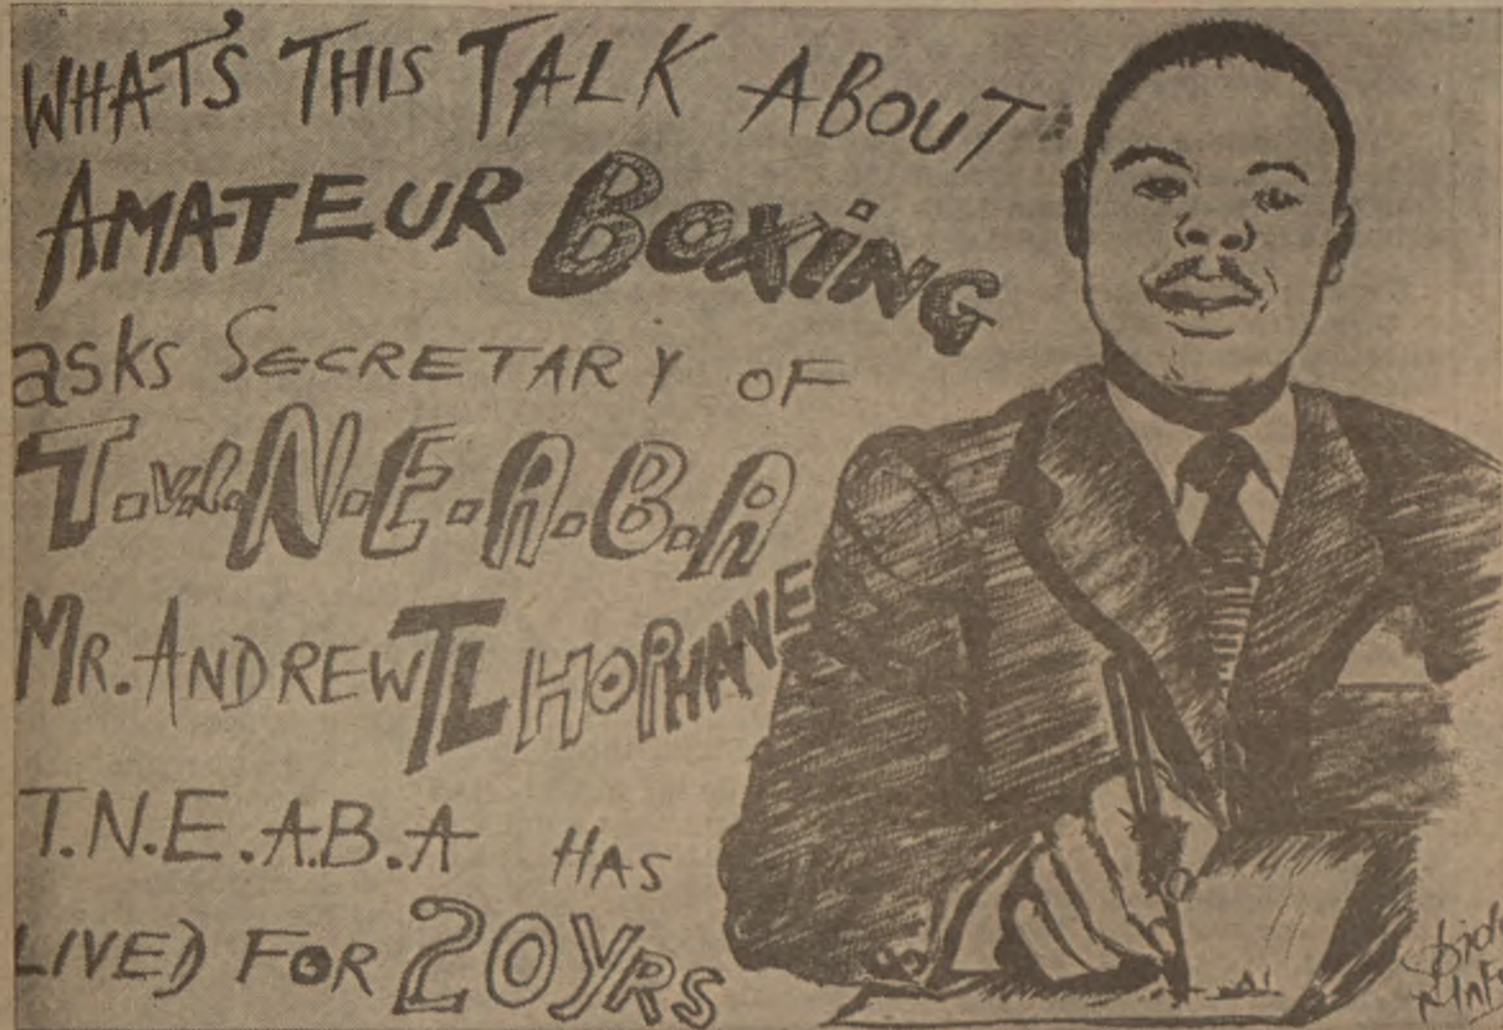 WHAT'S THIS TALK ABOUT
AMATEUR BOXING
asks SECRETARY OF
T.vl.N.E.A.B.A
MR. ANDREW TLHOPHANE
T.N.E.A.B.A HAS
LIVED FOR 20YRS